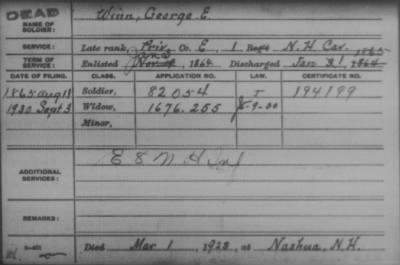 DEAD
NAME OF SOLDIER: Winn, George E.
SERVICE: Late rank, Priv Co. E, 1 Reg't N.H. Cav.
TERM OF SERVICE: Enlisted 1864 Discharged Jan 31, 1864 1865
DATE OF FILING. CLASS. APPLICATION NO. LAW. CERTIFICATE NO.
1865 Aug 11 Soldier, 82054 194199
1920 Sept 3 Widow, 1676.255 8-9-00
Minor,
ADDITIONAL SERVICES: E 8 N H Inf
REMARKS:
Died Mar 1, 1928, at Nashua, N.H.